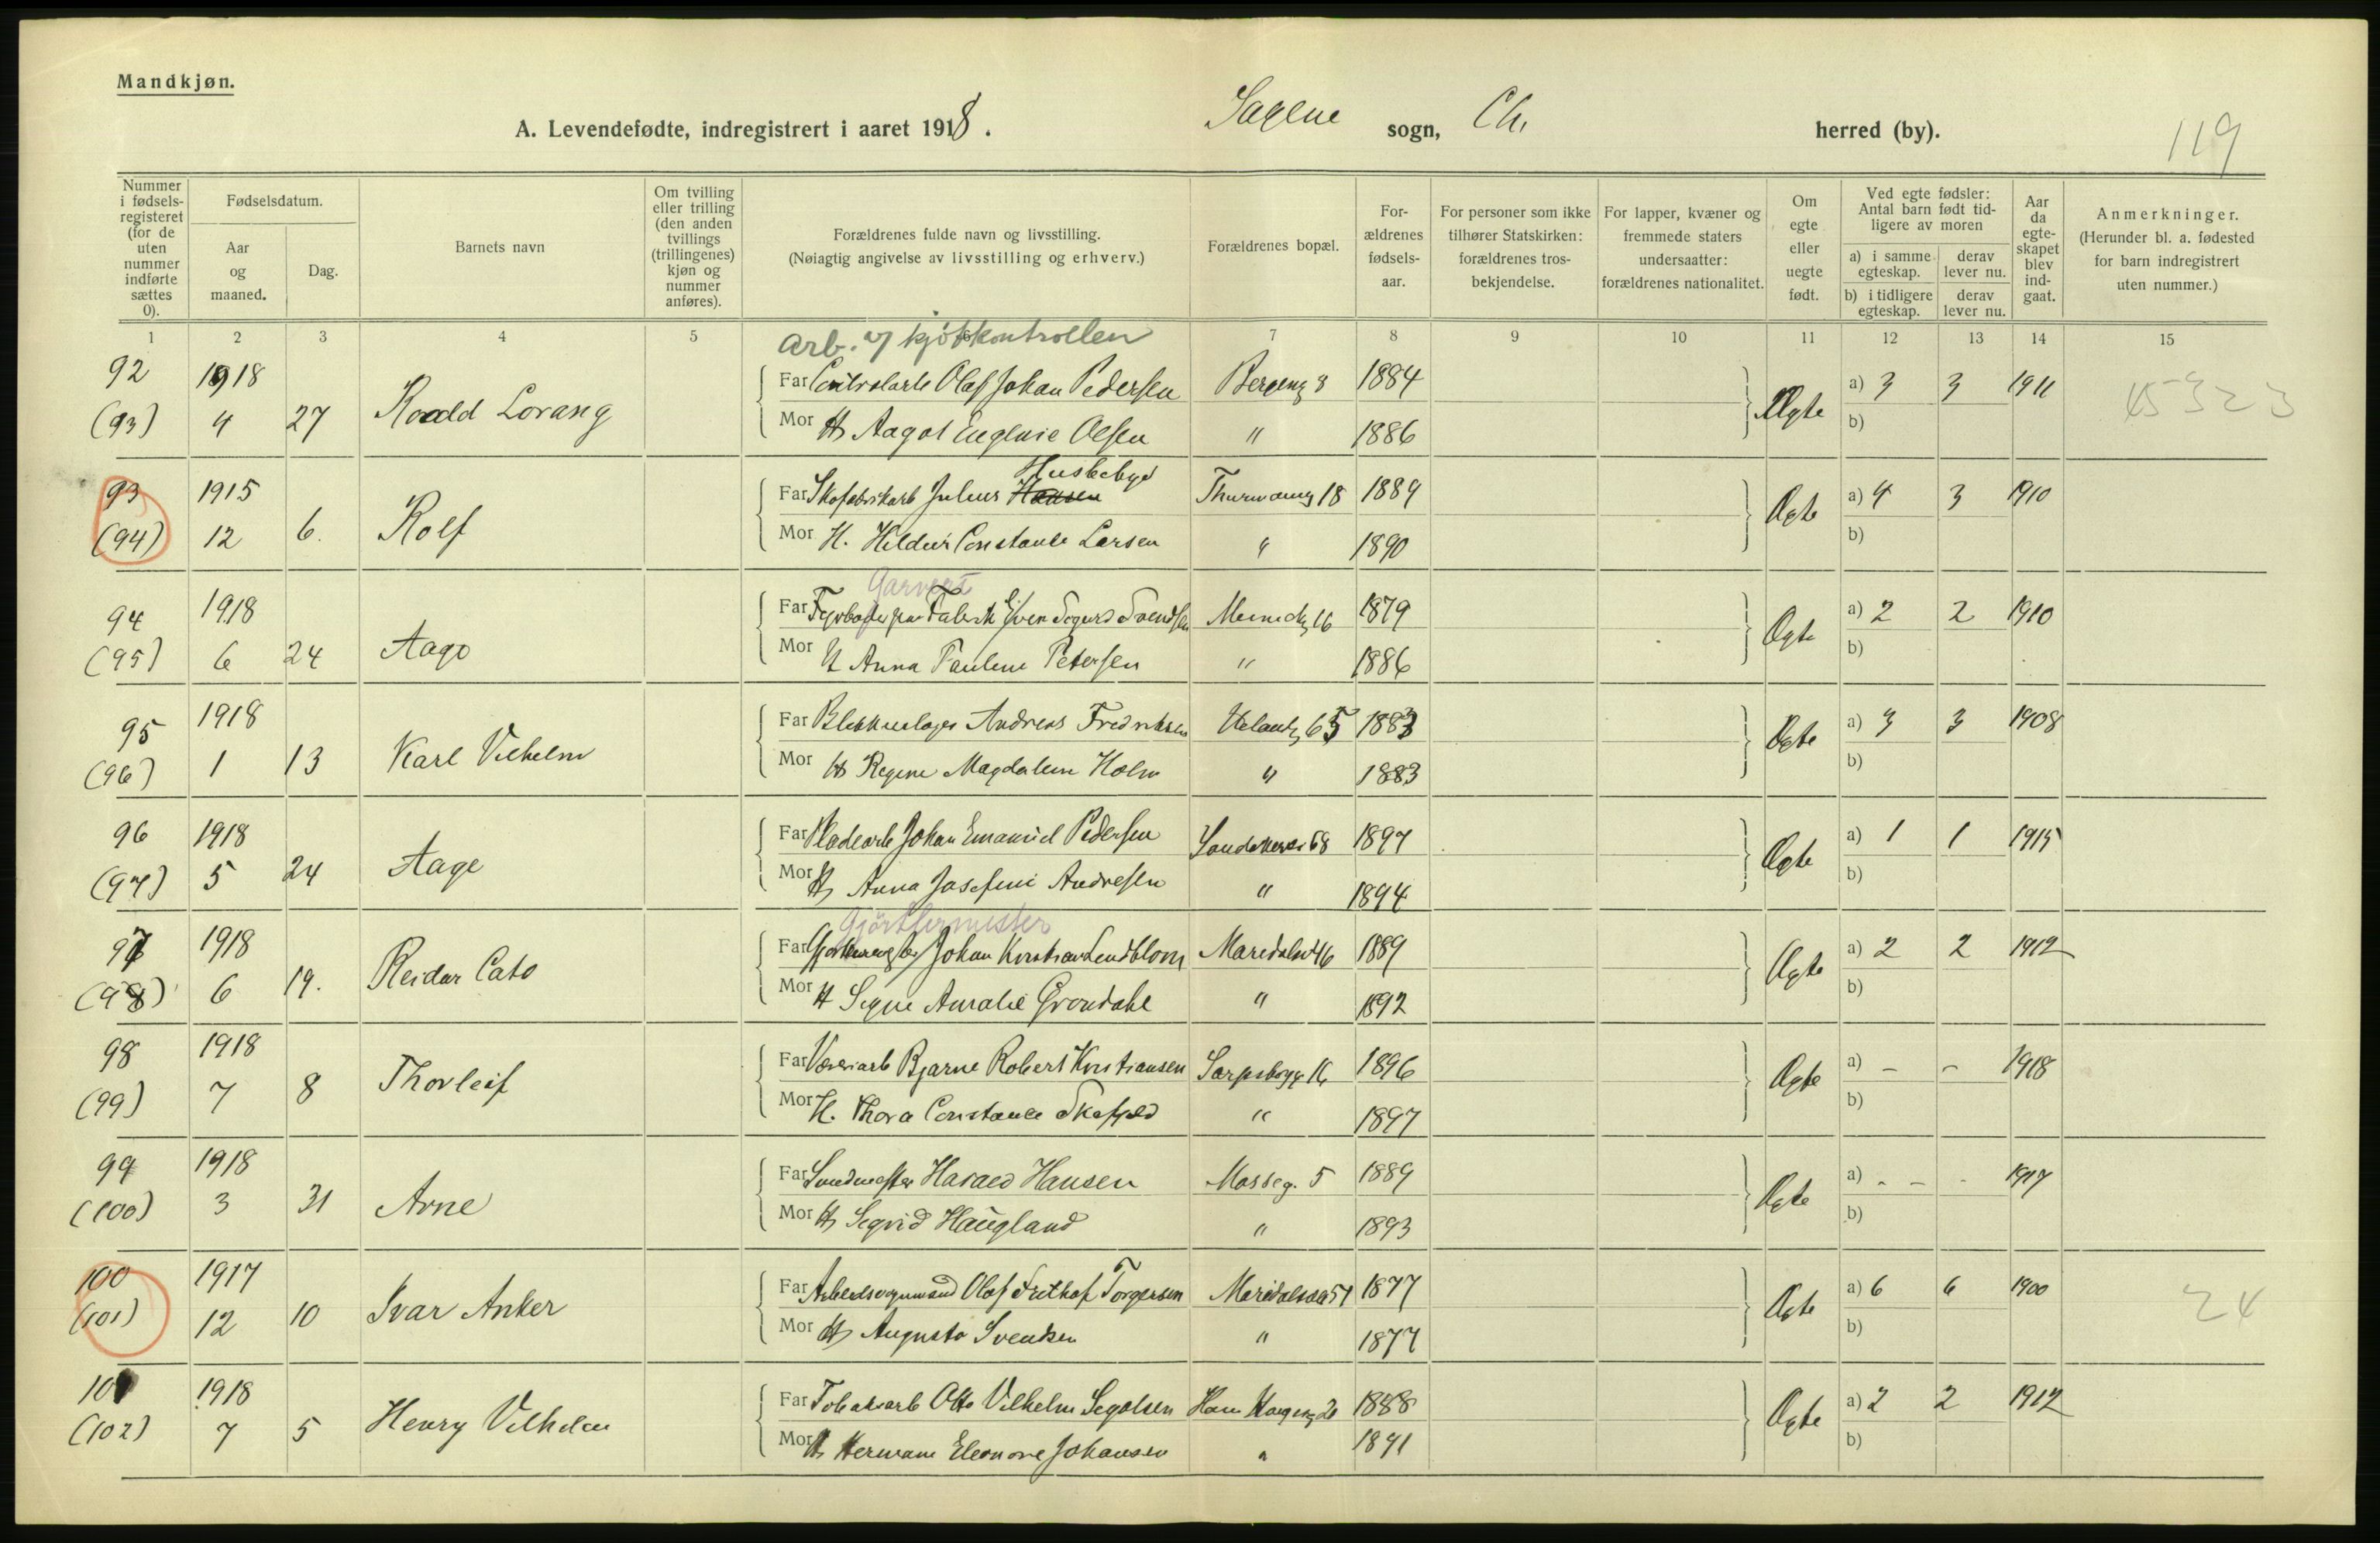 Mandkjøn.
A. Levendefødte, indregistrert i aaret 1918. Sagene sogn, Ch. herred (by). 119
Nummer i fødselsregisteret (for de uten nummer indførte sættes 0).
Fødselsdatum.
Aar og maaned.
Dag.
Barnets navn
Om tvilling eller trilling (den anden tvillings (trillingenes) kjøn og nummer anføres).
Forældrenes fulde navn og livsstilling.
(Nøiagtig angivelse av livsstilling og erhverv.)
Forældrenes bopæl.
Forældrenes fødselsaar.
For personer som ikke tilhører Statskirken: forældrenes trosbekjendelse.
For lapper, kvæner og fremmede staters undersaatter: forældrenes nationalitet.
Om egte eller uegte født.
Ved egte fødsler: Antal barn født tidligere av moren
a) i samme egteskap. derav lever nu.
b) i tidligere egteskap. derav lever nu.
Aar da egteskapet blev indgaat.
Anmerkninger.
(Herunder bl. a. fødested for barn indregistrert uten nummer.)
1 2 3 4 5 6 7 8 9 10 11 12 13 14 15
Arb. v/ kjøtkontrollen
92 1918 Far Olaf Johan Pedersen Bergensg 8 1884 a) 3 3 1911
(93) 4 27 Roald Lorang Mor H Aagot Eugenie Olsen " 1886 Ægte b) 15323
Husbebye
93 1915 Far Skofabrikarb Julius Hansen 18 1889 a) 4 3 1910
(94) 12 6. Rolf Mor H. Constance Larsen " 1890 Ægte b)
Garveri
94 1918 Far Sigurd Svendsen 16 1879 a) 2 2 1910
(95) 6 24 Aage Mor H Anna Pauline Petersen " 1886 Ægte b)
95 1918 Far Blikkenslager Andreas Fredriksen Uelandsg 65 1883 a) 3 3 1908
(96) 1 13 Karl Vilhelm Mor H Regine Magdalene Holm " 1883 Ægte b)
96 1918 Far Pladearb Johan Emanuel Pedersen Sandakerv 68 1897 a) 1 1 1915
(97) 5 24 Aage Mor H Anna Josefine Andresen " 1894 Ægte b)
Gjørtlermester
97 1918 Far Gjørtlermester Johan Kristian Lundblom Maridalsv 46 1889 a) 2 2 1912
(98) 6 19. Reidar Cato Mor H Signe Amalie Grøndahl " 1892 Ægte b)
98 1918 Far Væveriarb Bjarne Robert Kristiansen Sarpsborgg 16 1896 a) - - 1918
(99) 7 8 Thorleif Mor H. Thora Constance " 1897 Ægte b)
99 1918 Far Smedmester Harald Hansen Mosseg. 5 1889 a) - - - 1917
(100) 3 31 Arne Mor H Sigrid Haugland " 1893 Ægte b)
100 1917 Far Arbeidsvognmand Olaf Frithof Torgersen Maridalsv 57 1877 a) 6 6 1900
(101) 12 10 Ivar Anker Mor H Augusta Svendsen " 1877 Ægte b) 24
101 1918 Far Tobaksarb Otto Vilhelm Segolsen 20 1888 a) 2 2 1912
(102) 7 5 Henry Vilhelm Mor H Hermane Eleonore Johansen " 1891 Ægte b)